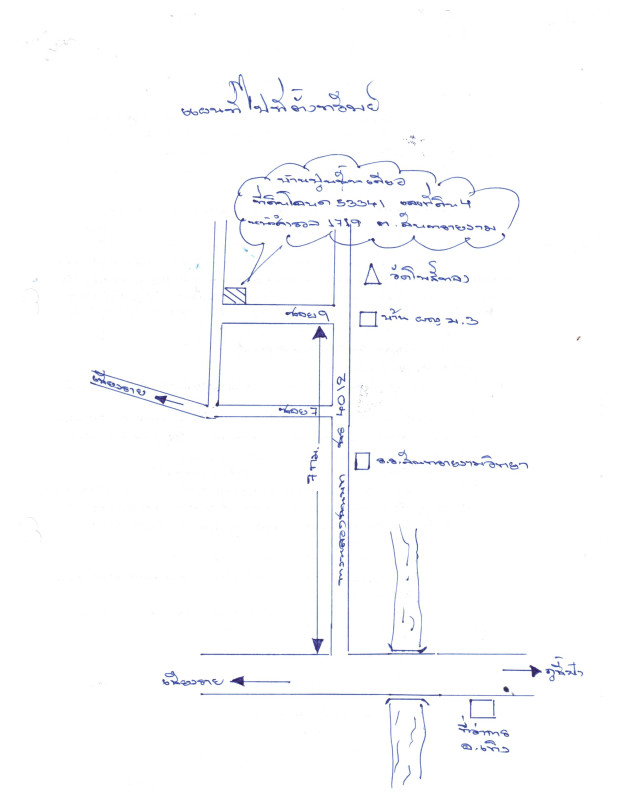 แผนที่ไปที่ตั้งทรัพย์
บ้านปูนชั้นเดียว
ที่ดินโฉนด 53341 เลขที่ดิน 4
หน้าสำรวจ 1719 ต.สันทรายงาม
วัดโพธิ์ทอง
ซอย 9
บ้าน ผญ. ม.3
เชียงราย
ซอย 7
ทางหลวงชนบท ชร 4012
7 กม.
ร.ร.สันทรายงามวิทยา
เชียงราย
ภูชี้ฟ้า
ที่ว่าการ
อ.เทิง